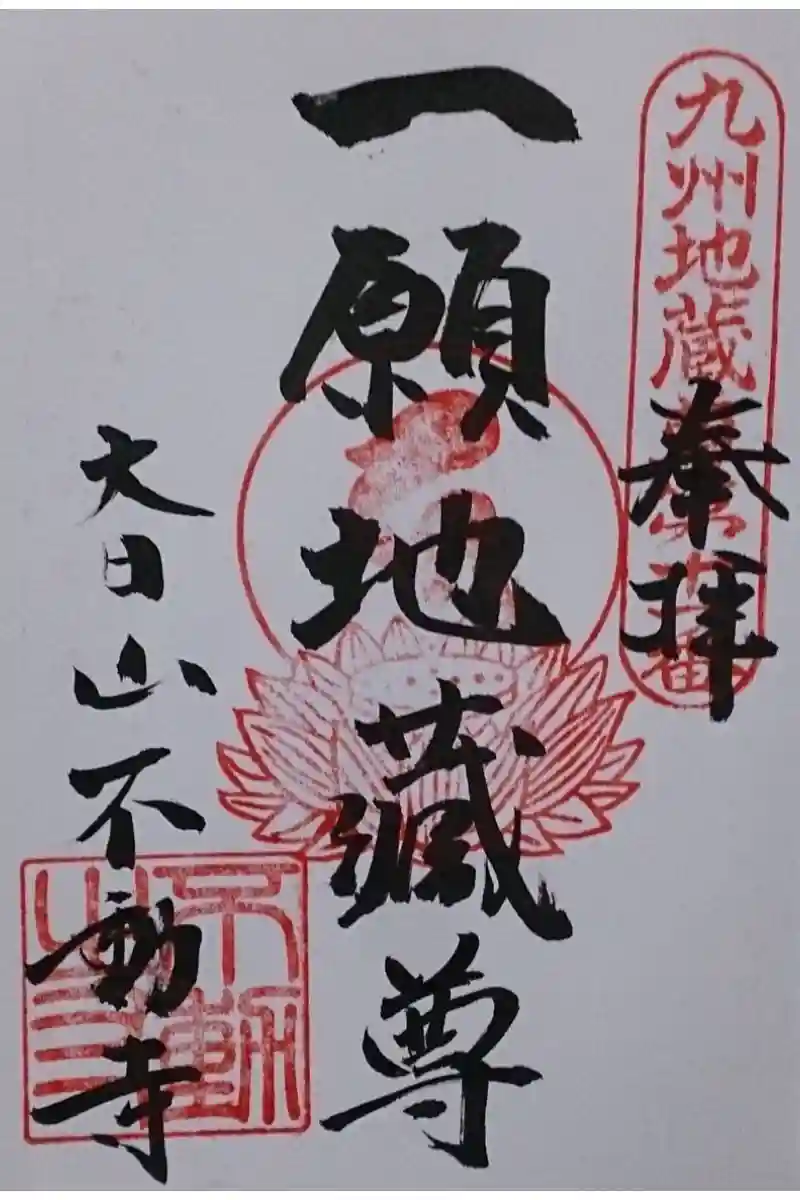 九州地蔵
奉拝
一願地蔵尊
大日山不動寺
不動